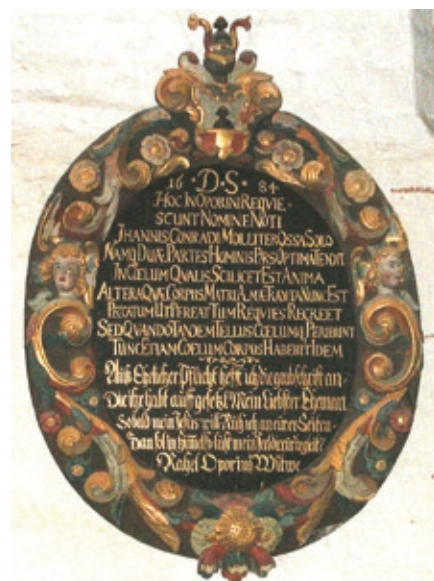 16 · D · S · 84
HOC IN OPORINI REQVIE-
SCUNT NOMINE NOTI
IHANNIS CONRADI MOLLITER OSSA SOLO
NAMQ DUÆ PARTES HOMINIS PARS OPTIMA TENDIT
IN COELUM QVALIS SCILICET EST ANIMA
ALTERA QVÆ CORPUS MATRI NUNC EST
PECCATUM UT PEREAT TUM REQVIES RECREET
SED QVANDO TANDEM TELLUS COELUMQ PERIBUNT
TUNC ETIAM COELUM CORPUS HABEBIT IDEM
Auß Ehelicher Pflicht hefft ich die grabschrifft an
Die ihr habt auff gesetzt Mein Liebster Ehemann
So bald mein Jesus will Ruh ich an eurer Seiten
Dan
Rahel Oporins Witwe